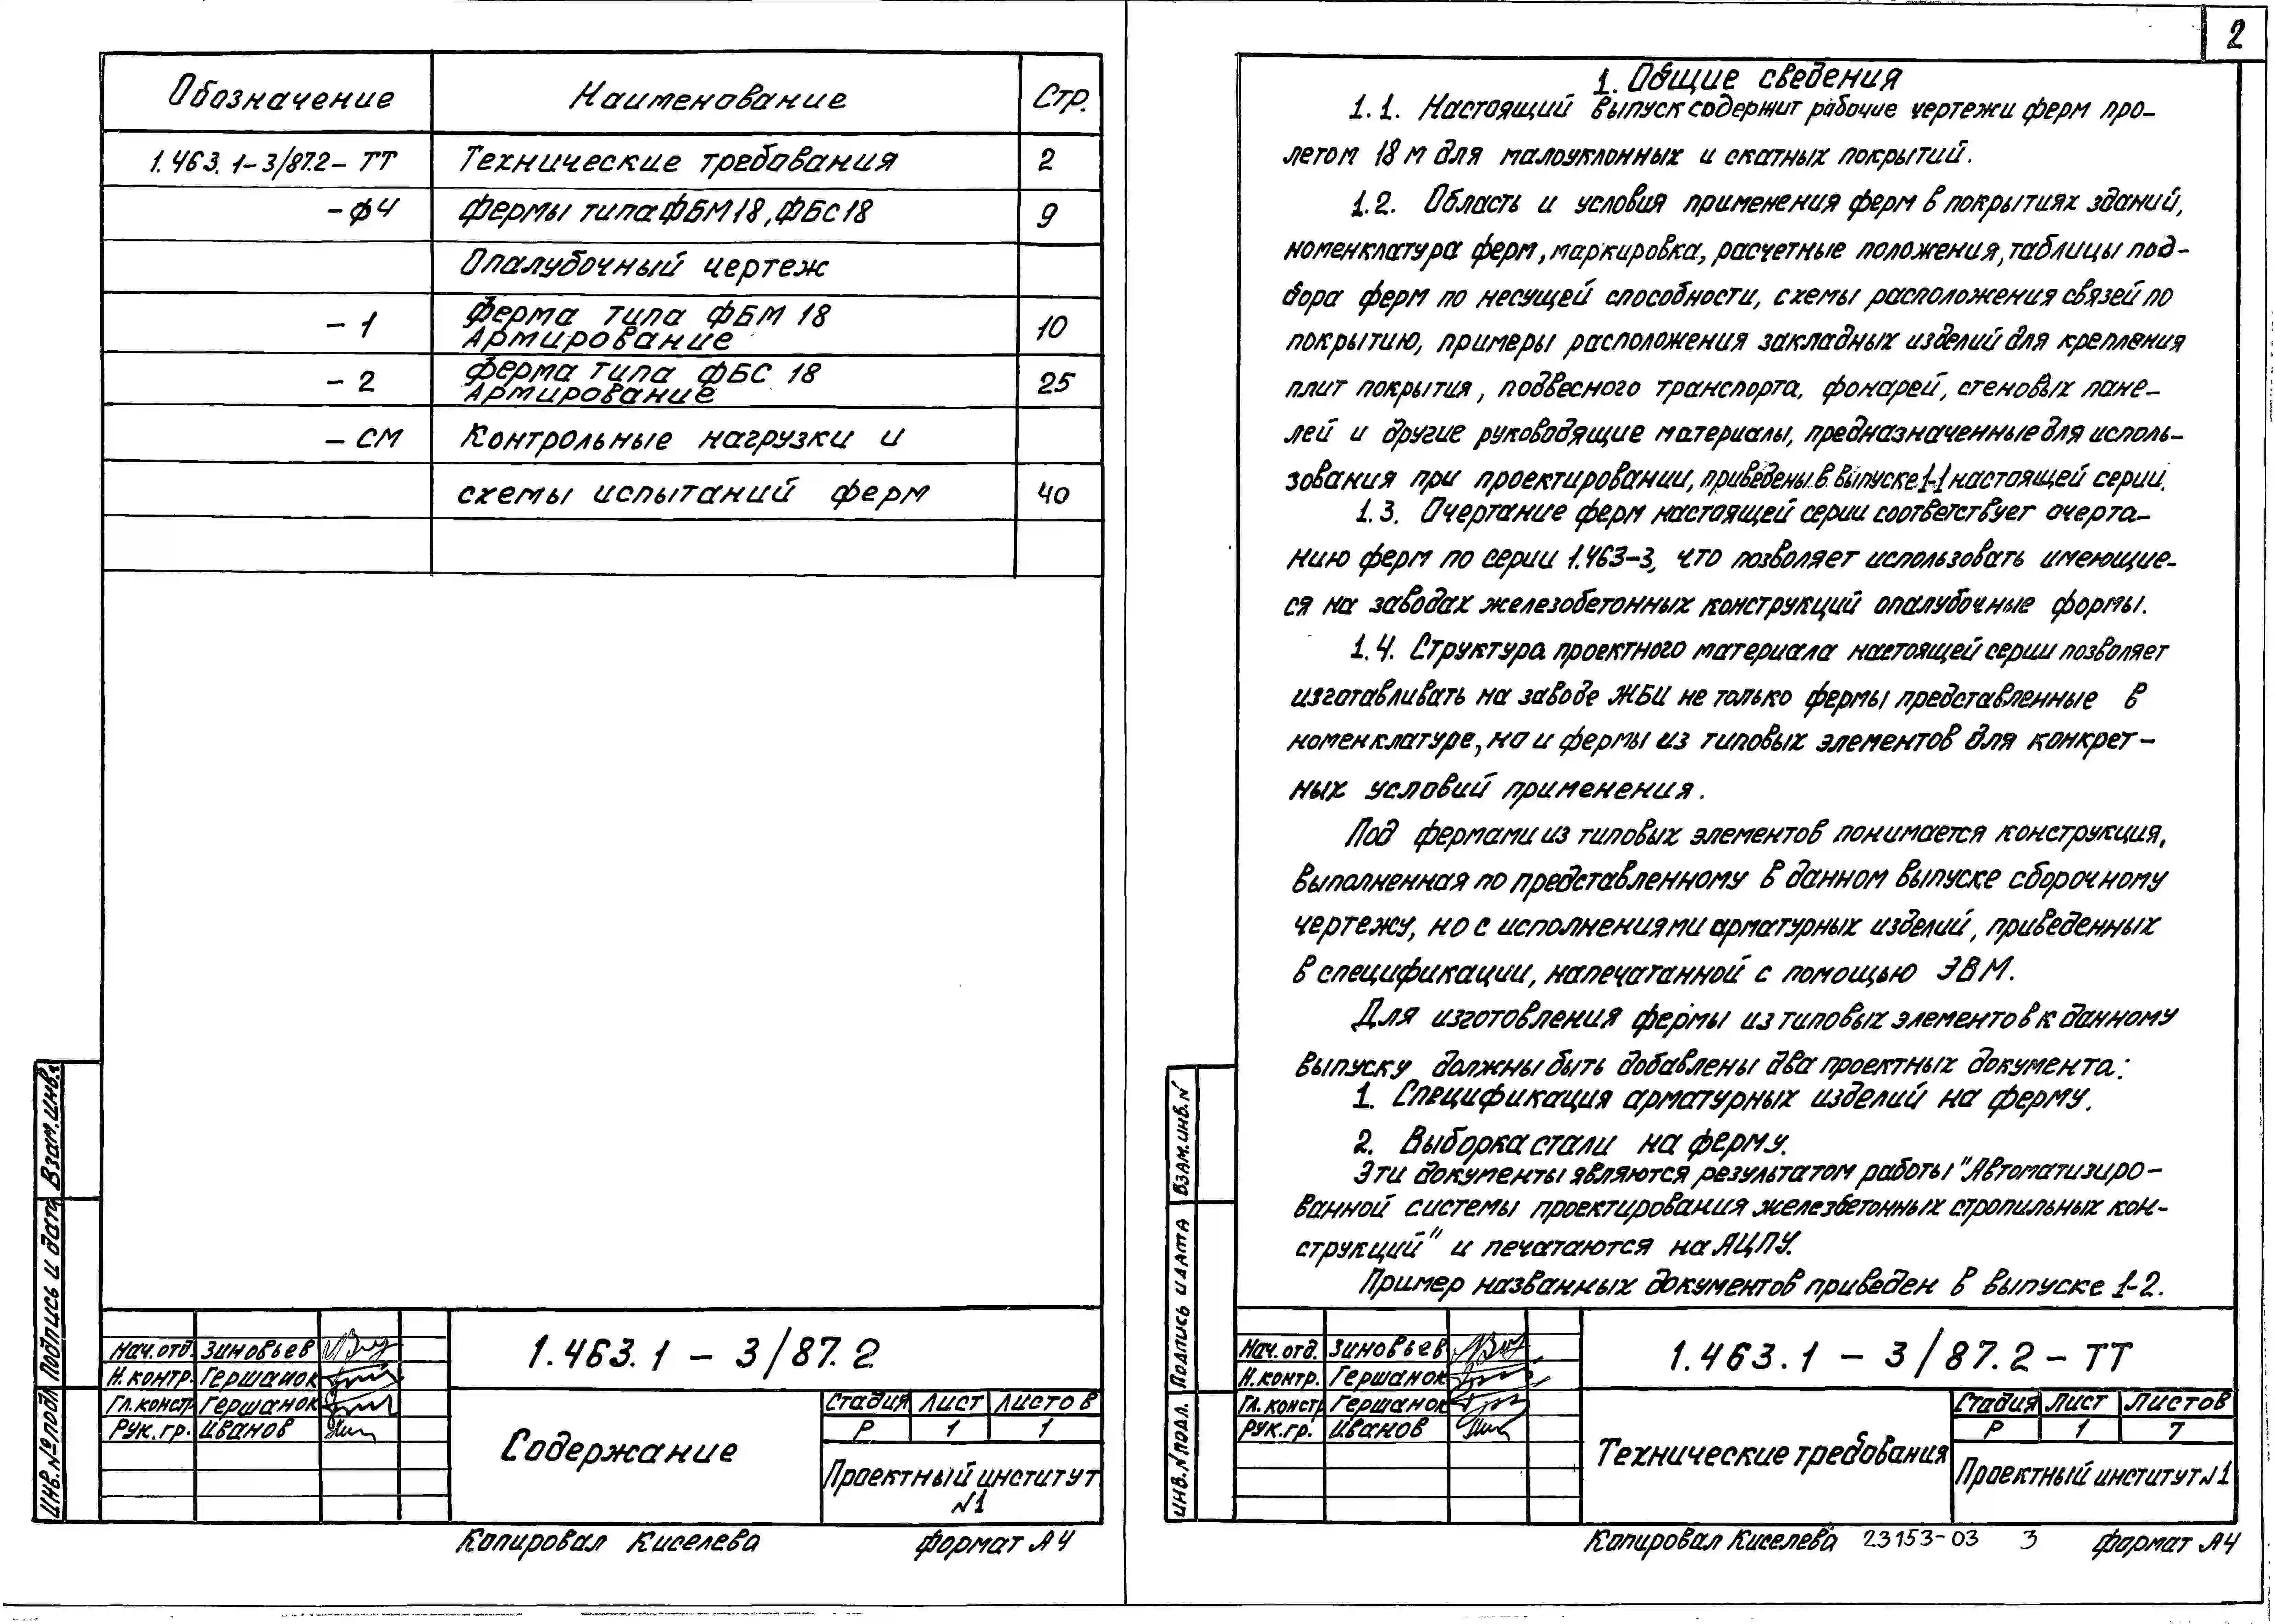 Обозначение Наименование Стр.
1.463.1-3/87.2-ТТ Технические требования 2
-ФЧ Фермы типа ФБМ18, ФБС18 9
Опалубочный чертеж
-1 Ферма типа ФБМ 18
Армирование 10
-2 Ферма типа ФБС 18
Армирование 25
-СМ Контрольные нагрузки и
схемы испытаний ферм 40
Взам.инв.
Подпись и дата
Инв.№подл
Нач.отд. Зиновьев
Н.контр. Гершанок
Гл.констр Гершанок
Рук.гр. Иванов
1.463.1 - 3/87.2
Содержание
Стадия Лист Листов
Р 1 1
Проектный институт
№1
Копировал Киселева Формат А4
2
1. Общие сведения
1.1. Настоящий выпуск содержит рабочие чертежи ферм про-
летом 18 м для малоуклонных и скатных покрытий.
1.2. Область и условия применения ферм в покрытиях зданий,
номенклатура ферм, маркировка, расчетные положения, таблицы под-
бора ферм по несущей способности, схемы расположения связей по
покрытию, примеры расположения закладных изделий для крепления
плит покрытия, подвесного транспорта, фонарей, стеновых пане-
лей и другие руководящие материалы, предназначенные для исполь-
зования при проектировании, приведены в выпуске 1-1 настоящей серии.
1.3. Очертание ферм настоящей серии соответствует очерта-
нию ферм по серии 1.463-3, что позволяет использовать имеющие-
ся на заводах железобетонных конструкций опалубочные формы.
1.4. Структура проектного материала настоящей серии позволяет
изготавливать на заводе ЖБИ не только фермы представленные в
номенклатуре, но и фермы из типовых элементов для конкрет-
ных условий применения.
Под фермами из типовых элементов понимается конструкция,
выполненная по представленному в данном выпуске сборочному
чертежу, но с исполнениями арматурных изделий, приведенных
в спецификации, напечатанной с помощью ЭВМ.
Для изготовления фермы из типовых элементов к данному
выпуску должны быть добавлены два проектных документа:
1. Спецификация арматурных изделий на ферму.
2. Выборка стали на ферму.
Эти документы являются результатом работы "Автоматизиро-
ванной системы проектирования железбетонных стропильных кон-
струкций" и печатаются на АЦПУ.
Пример названных документов приведен в выпуске 1-2.
Взам.инв.№
Подпись и дата
Инв.№подл.
Нач.отд. Зиновьев
Н.контр. Гершанок
Гл.констр Гершанок
Рук.гр. Иванов
1.463.1 - 3/87.2-ТТ
Технические требования
Стадия Лист Листов
Р 1 7
Проектный институт №1
Копировал Киселева 23153-03 3 Формат А4